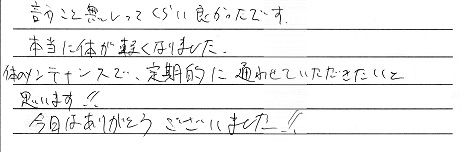 言うこと無しってくらい良かったです.
本当に体が軽くなりました.
体のメンテナンスで、定期的に通わせていただきたいと
思います!!
今日はありがとうございました!!